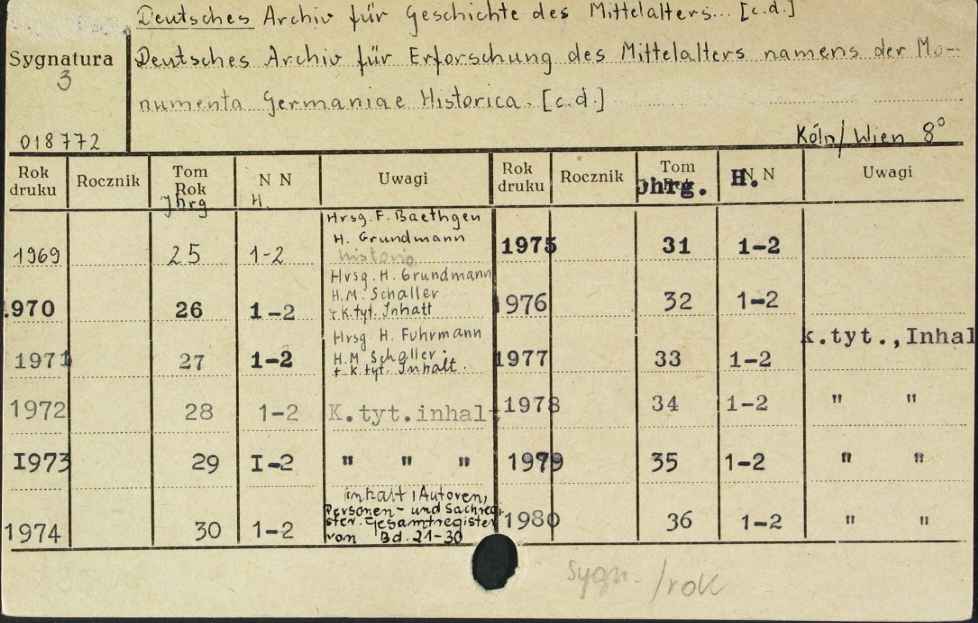 Deutsches Archiv für Geschichte des Mittelalters... [c.d.]
Deutsches Archiv für Erforschung des Mittelalters namens der Mo-
numenta Germaniae Historica. [c.d.]
Sygnatura
3
018772
Köln/Wien 8°
Rok druku Rocznik Tom Rok N N Uwagi Rok druku Rocznik Tom N N Uwagi
Jhrg H. Jhrg. H.
1969 25 1-2 Hrsg. F. Baethgen
H. Grundmann
historio
1970 26 1-2 Hrsg. H. Grundmann
H.M. Schaller
t.k.tyt. Inhalt
1971 27 1-2 Hrsg H. Fuhrmann
H.M. Schaller
t.k.tyt. Inhalt.
1972 28 1-2 K.tyt.inhalt
I973 29 I-2 " " "
1974 30 1-2 inhalt, Autoren,
Personen- und Sachregi
ster. Gesamtregister
von Bd. 21-30
1975 31 1-2
1976 32 1-2
k.tyt.,Inhal
1977 33 1-2
1978 34 1-2 " "
1979 35 1-2 " "
1980 36 1-2 " "
Sygn. /rok